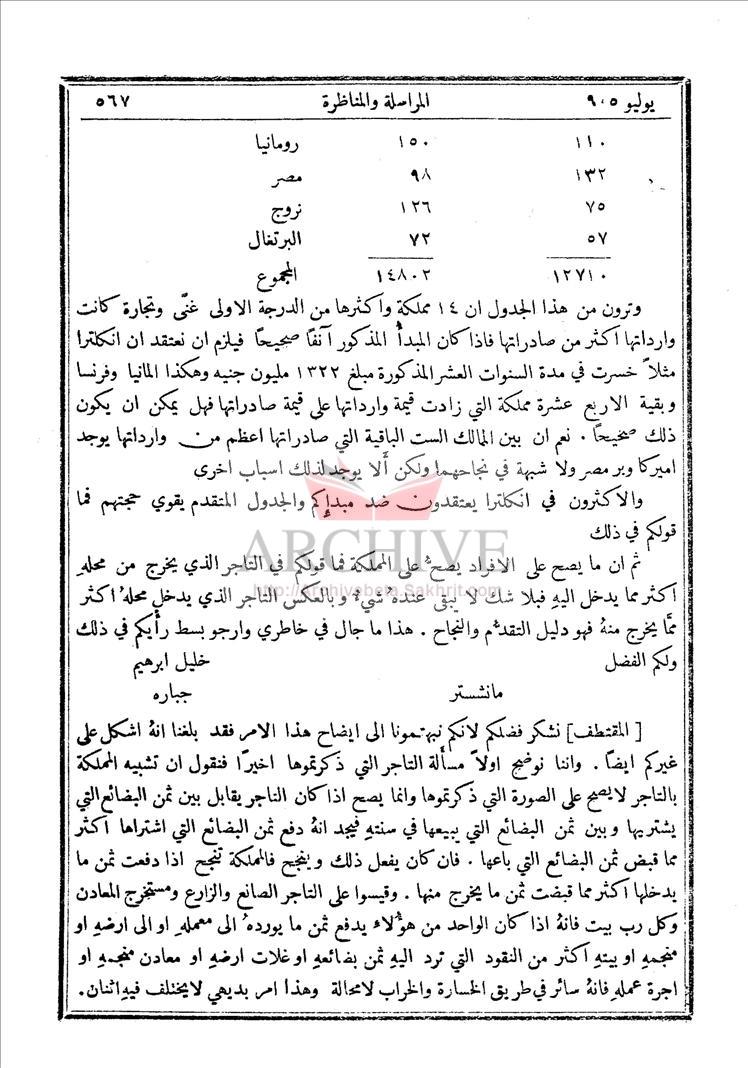 يوليو ٩٠٥ المراسلة والمناظرة ٥٦٧
١١٠ ١٥٠ رومانيا
١٣٢ ٩٨ مصر
٧٥ ١٢٦ نروج
٥٧ ٧٢ البرتغال
١٢٧١٠ ١٤٨٠٢ المجموع
وترون من هذا الجدول ان ١٤ مملكة واكثرها من الدرجة الاولى غنًى وتجارة كانت
وارداتها اكثر من صادراتها فاذا كان المبدأُ المذكور آنفًا صحيحًا فيلزم ان نعتقد ان انكلترا
مثلاً خسرت في مدة السنوات العشر المذكورة مبلغ ١٣٢٢ مليون جنيه وهكذا المانيا وفرنسا
وبقية الاربع عشرة مملكة التي زادت قيمة وارداتها على قيمة صادراتها فهل يمكن ان يكون
ذلك صحيحًا . نعم ان بين الممالك الست الباقية التي صادراتها اعظم من وارداتها يوجد
اميركا وبر مصر ولا شبهة في نجاحهما ولكن أَلا يوجد لذلك اسباب اخرى
والاكثرون في انكلترا يعتقدون ضد مبدإِكم والجدول المتقدم يقوي حجتهم فما
قولكم في ذلك
ثم ان ما يصح على الافراد يصحُّ على المملكة فما قولكم في التاجر الذي يخرج من محلهِ
اكثر مما يدخل اليهِ فبلا شك لا يبقى عندهُ شيءٌ وبالعكس التاجر الذي يدخل محلهُ اكثر
ممَّا يخرج منهُ فهو دليل التقدُّم والنجاح . هذا ما جال في خاطري وارجو بسط رأيكم في ذلك
ولكم الفضل خليل ابرهيم
مانشستر جباره
[ المقتطف] نشكر فضلكم لانكم نبهتمونا الى ايضاح هذا الامر فقد بلغنا انهُ اشكل على
غيركم ايضًا . واننا نوضح اولاً مسأَلة التاجر التي ذكرتموها اخيرًا فنقول ان تشبيه المملكة
بالتاجر لا يصح على الصورة التي ذكرتموها وانما يصح اذا كان التاجر يقابل بين ثمن البضائع التي
يشتريها وبين ثمن البضائع التي يبيعها في سنتهِ فيجد انهُ دفع ثمن البضائع التي اشتراها اكثر
مما قبض ثمن البضائع التي باعها . فان كان يفعل ذلك وينجح فالمملكة تنجح اذا دفعت ثمن ما
يدخلها اكثر مما قبضت ثمن ما يخرج منها . وقيسوا على التاجر الصانع والزارع ومستخرج المعادن
وكل رب بيت فانهُ اذا كان الواحد من هؤُلاء يدفع ثمن ما يوردهُ الى معملهِ او الى ارضهِ او
منجمهِ او بيتهِ اكثر من النقود التي ترد اليهِ ثمن بضائعهِ او غلات ارضهِ او معادن منجمهِ او
اجرة عملهِ فانهُ سائر في طريق الخسارة والخراب لا محالة وهذا امر بديهي لا يختلف فيهِ اثنان.
ARCHIVE
http://Archivebeta.Sakhrit.com